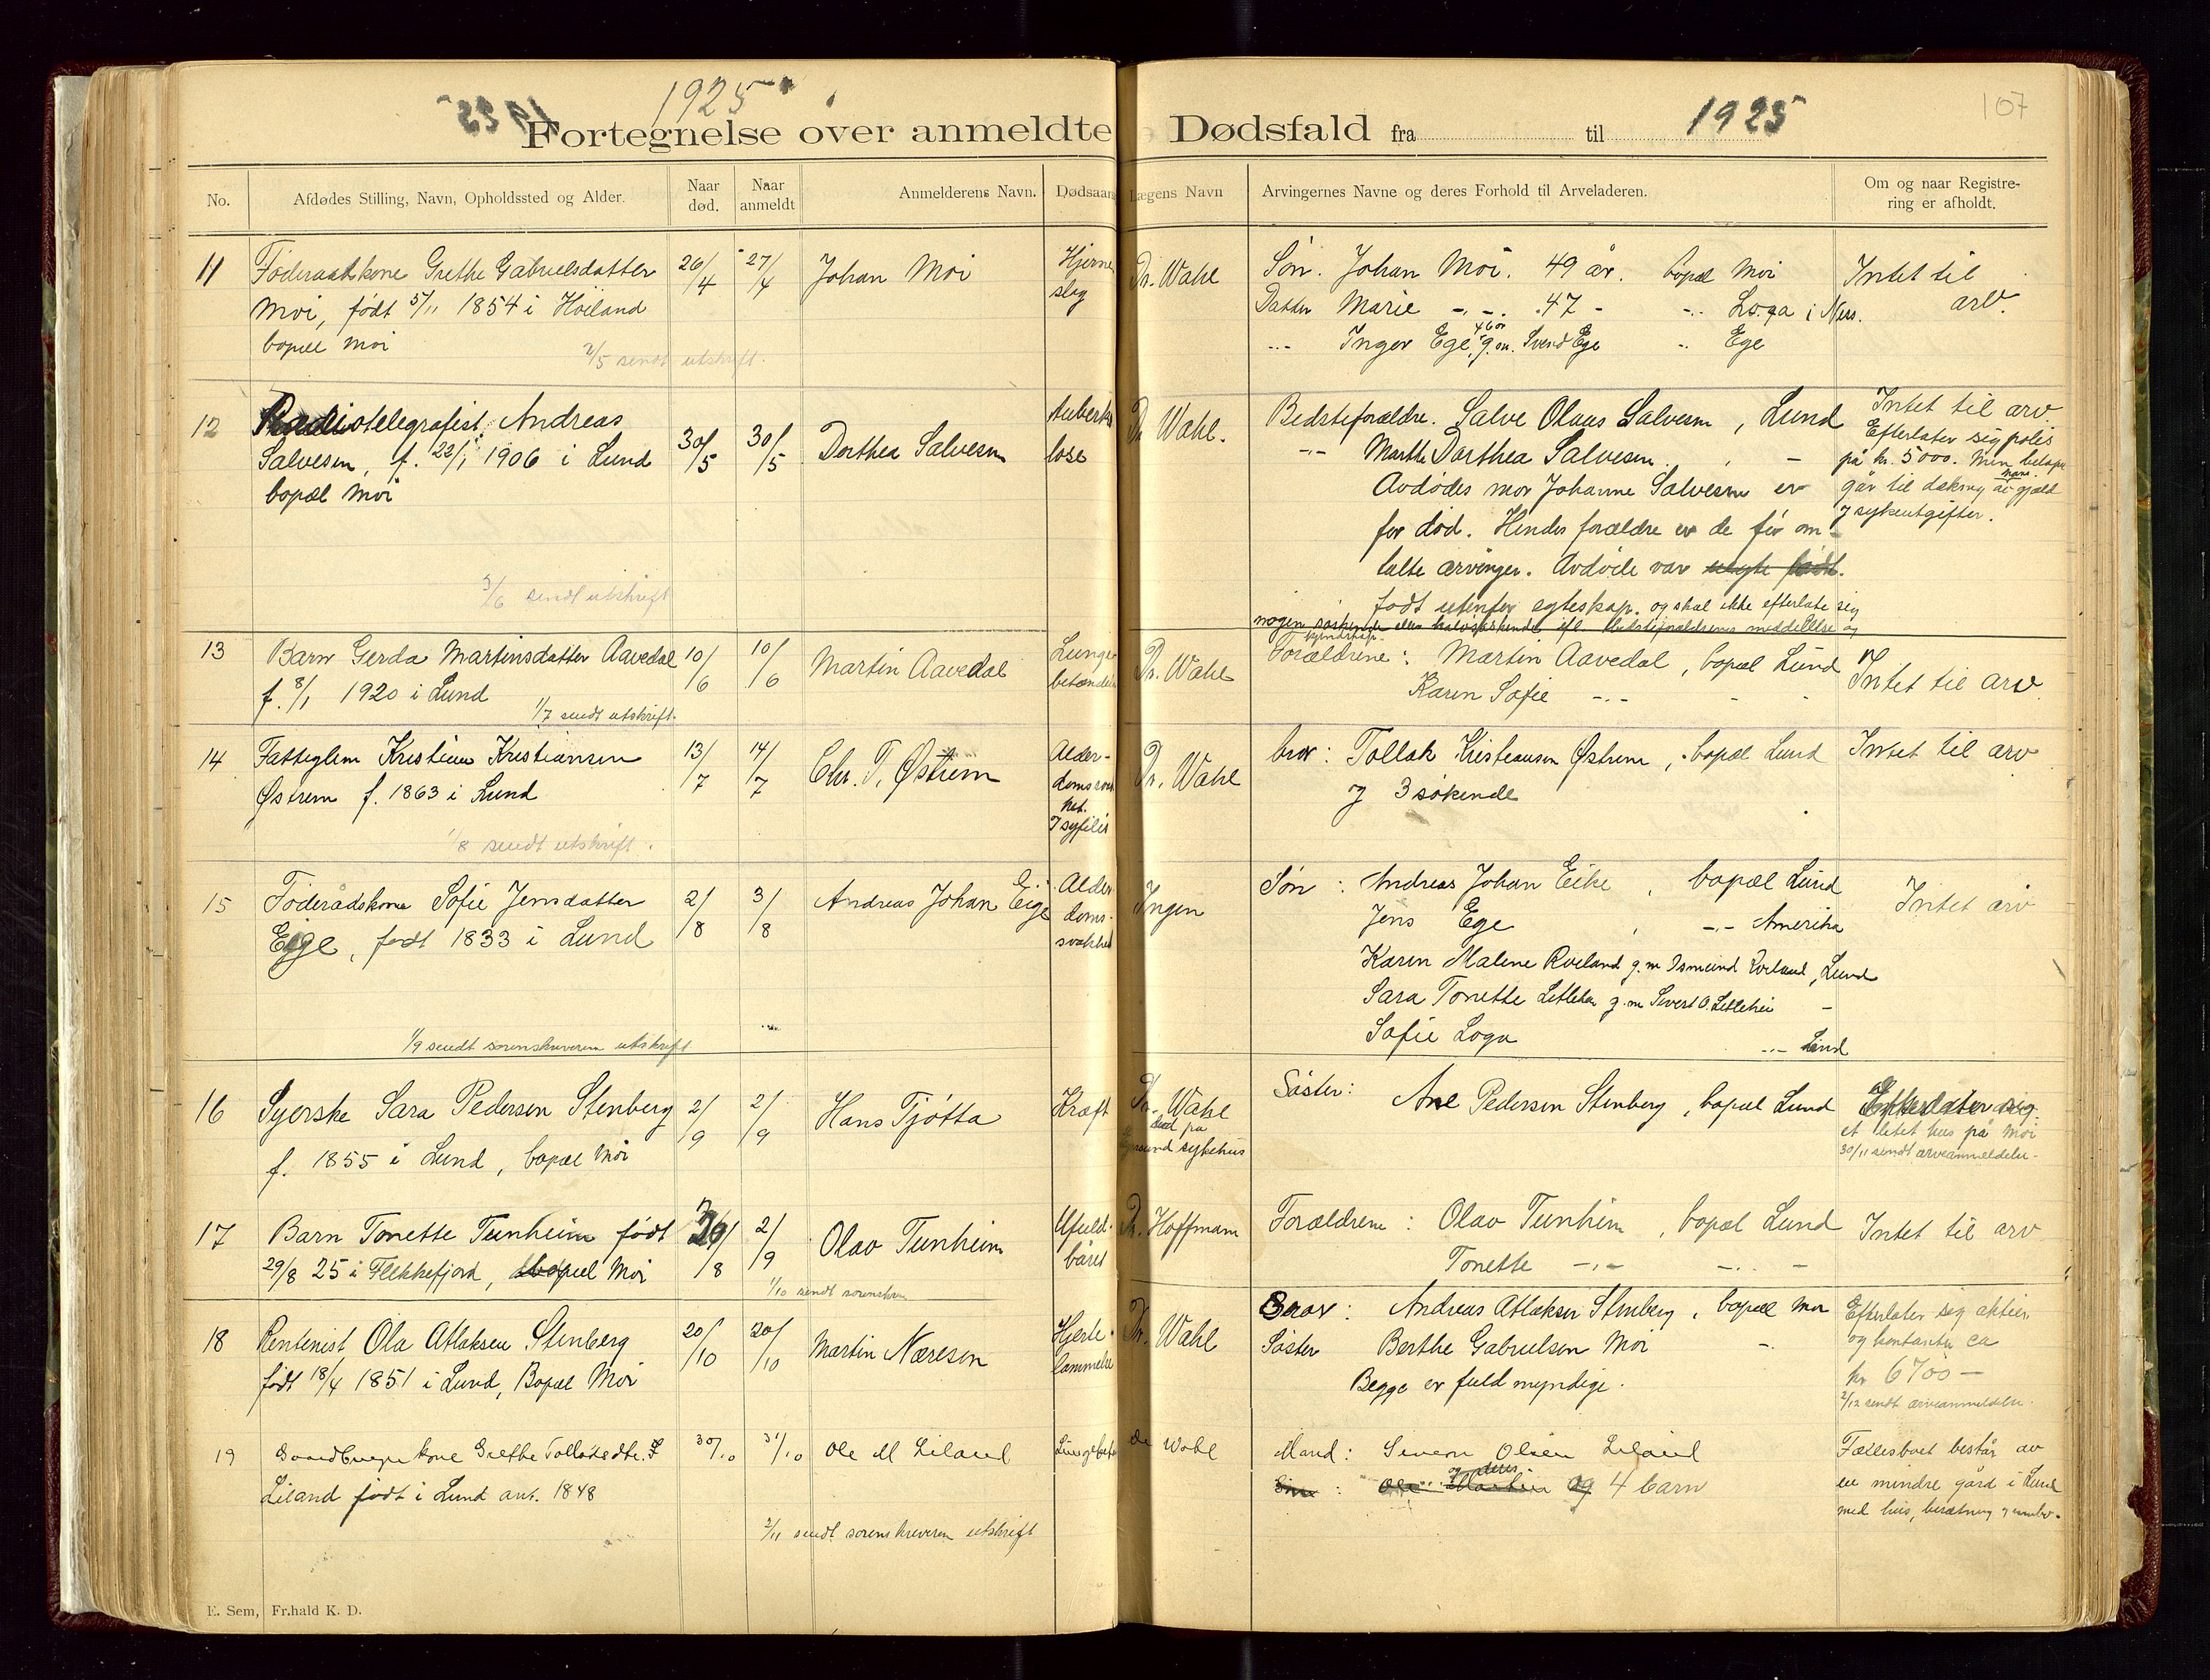 1925
1925
Fortegnelse over anmeldte Dødsfald fra til 1925
107
No. Afdødes Stilling, Navn, Opholdssted og Alder. Naar død. Naar anmeldt Anmelderens Navn. Dødsaar Lægens Navn Arvingernes Navne og deres Forhold til Arveladeren. Om og naar Registrering er afholdt.
11 Føderaadkone Grethe Gabrielsdatter
Moi, født 5/11 1854 i Höiland
bopæl Moi
2/5 sendt utskrift.
26/4 27/4 Johan Moi
Hjerne
slag
Dr. Wahl
Søn. Johan Moi. 49 år. bopæl Moi
Datter Marie -"- 47 - -"- Loga i Nes.
-"- Inger Ege, 46 år g.m. Svend Ege " Ege
Intet til
arv.
12 Radiotelegrafist Andreas
Salvesen, f. 22/1 1906 i Lund
bopæl Moi
3/6 sendt utskrift
30/5 30/5 Dorthea Salvesen
Tuberku
lose
Dr Wahl.
Bedsteforældre. Salve Olaus Salvesen, Lund
-"- Marthe Dorthea Salvesen. , -
Avdødes mor Johanne Salvesen er
før død. Hendes forældre er de før om-
talte arvinger. Avdøde var uegte født.
født utenfor egteskap. og skal ikke efterlate sig
nogen søskende eller halvsøskende ifl. bedsteforældrenes meddelelse og
kjendskap.
Intet til arv
Efterlater sig polis
på kr. 5000. Men beløpet
går til dækning av gjæld
og sykeutgifter.
13 Barn Gerda Martinsdatter Aavedal
f. 8/1 1920 i Lund
1/7 sendt utskrift.
10/6 10/6 Martin Aavedal
Lunge
betændels
Dr. Wahl
Forældrene: Martin Aavedal, bopæl Lund
Karen Sofie -"- -
Intet til arv
14 Fattiglem Kristian Kristiansen
Østrem f. 1863 i Lund
1/8 sendt utskrift.
13/7 14/7 Chr. T. Østrem
Alder-
domssvak
het.
og syfilis
Dr. Wahl
bror: Tollak Kristiansen Østrem, bopæl Lund
og 3 søskende
Intet til arv
15 Føderådskone Sofie Jensdatter
Eige, født 1833 i Lund
1/9 sendt sorenskriveren utskrift
2/8 3/8 Andreas Johan Eige
Alder
doms-
svakhed
Ingen
Søn: Andreas Johan Eike, bopæl Lund
Jens Ege , -"- Amerika
Karen Malene Roeland g.m Osmund Roeland, Lund
Sara Tonette Litlehei g.m Sivert O. Litlehei -
Sofie Loga -"- Lund
Intet arv
16 Syerske Sara Pedersen Stenberg
f. 1855 i Lund, bopæl Moi
2/9 2/9 Hans Tjøtta
Kræft
Dr. Wahl
død på
Egersund sykehus
Søster: Ane Pedersen Stenberg, bopæl Lund
Efterlater sig
et litet hus på Moi
30/11 sendt arveanmeldelse.
17 Barn Tonette Tunheim født
29/8 25 i Flekkefjord, bopæl Moi
30/8 2/9 Olav Tunheim
1/10 sendt sorenskr.
Ufuld-
båret
Dr. Hoffmann
Forældrene: Olav Tunheim, bopæl Lund
Tonette -"- -"- -
Intet til arv
18 Rentenist Ola Atlaksen Stenberg
født 18/4 1851 i Lund, Bopæl Moi
20/10 20/10 Martin Næresen
Hjerte-
lammelse
Dr. Wahl
Bror: Andreas Atlaksen Stenberg, bopæl Moi
Søster Berthe Gabrielsen Moi -"-
Begge er fuld myndige.
Efterlater sig aktier
og kontanter ca
kr 6700 —
2/12 sendt arveanmeldelse.
19 Gaardbruger kone Grethe Tollaksdtr.
Liland født i Lund ant. 1848
2/11 sendt sorenskriveren utskrift
30/10 31/10 Ole M Liland
Lungebet
Dr Wahl
Mand: Simon Olsen Liland
Søn: Ole Martin og og deres 4 barn
Fællesboet består av
en mindre gård i Lund
med hus, besætning og innbo.
E. Sem, Fr.hald K. D.